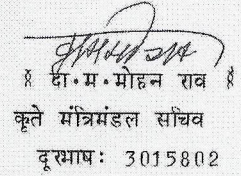 दा·म·मोहन राव
कृते मंत्रिमंडल सचिव
दूरभाष: 3015802